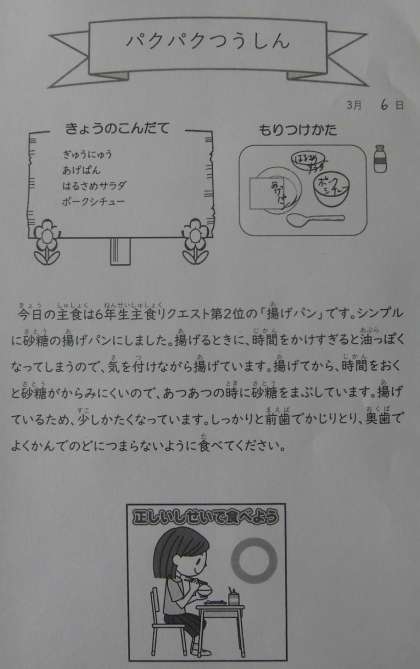 パクパクつうしん
3月 6日
きょうのこんだて
ぎゅうにゅう
あげぱん
はるさめサラダ
ポークシチュー
もりつけかた
はるさめ
サラダ
あげパン
ポーク
シチュー
今日の主食は6年生主食リクエスト第2位の「揚げパン」です。シンプル
に砂糖の揚げパンにしました。揚げるときに、時間をかけすぎると油っぽく
なってしまうので、気を付けながら揚げています。揚げてから、時間をおく
と砂糖がからみにくいので、あつあつの時に砂糖をまぶしています。揚げ
ているため、少しかたくなっています。しっかりと前歯でかじりとり、奥歯で
よくかんでのどにつまらないように食べてください。
正しいしせいで食べよう